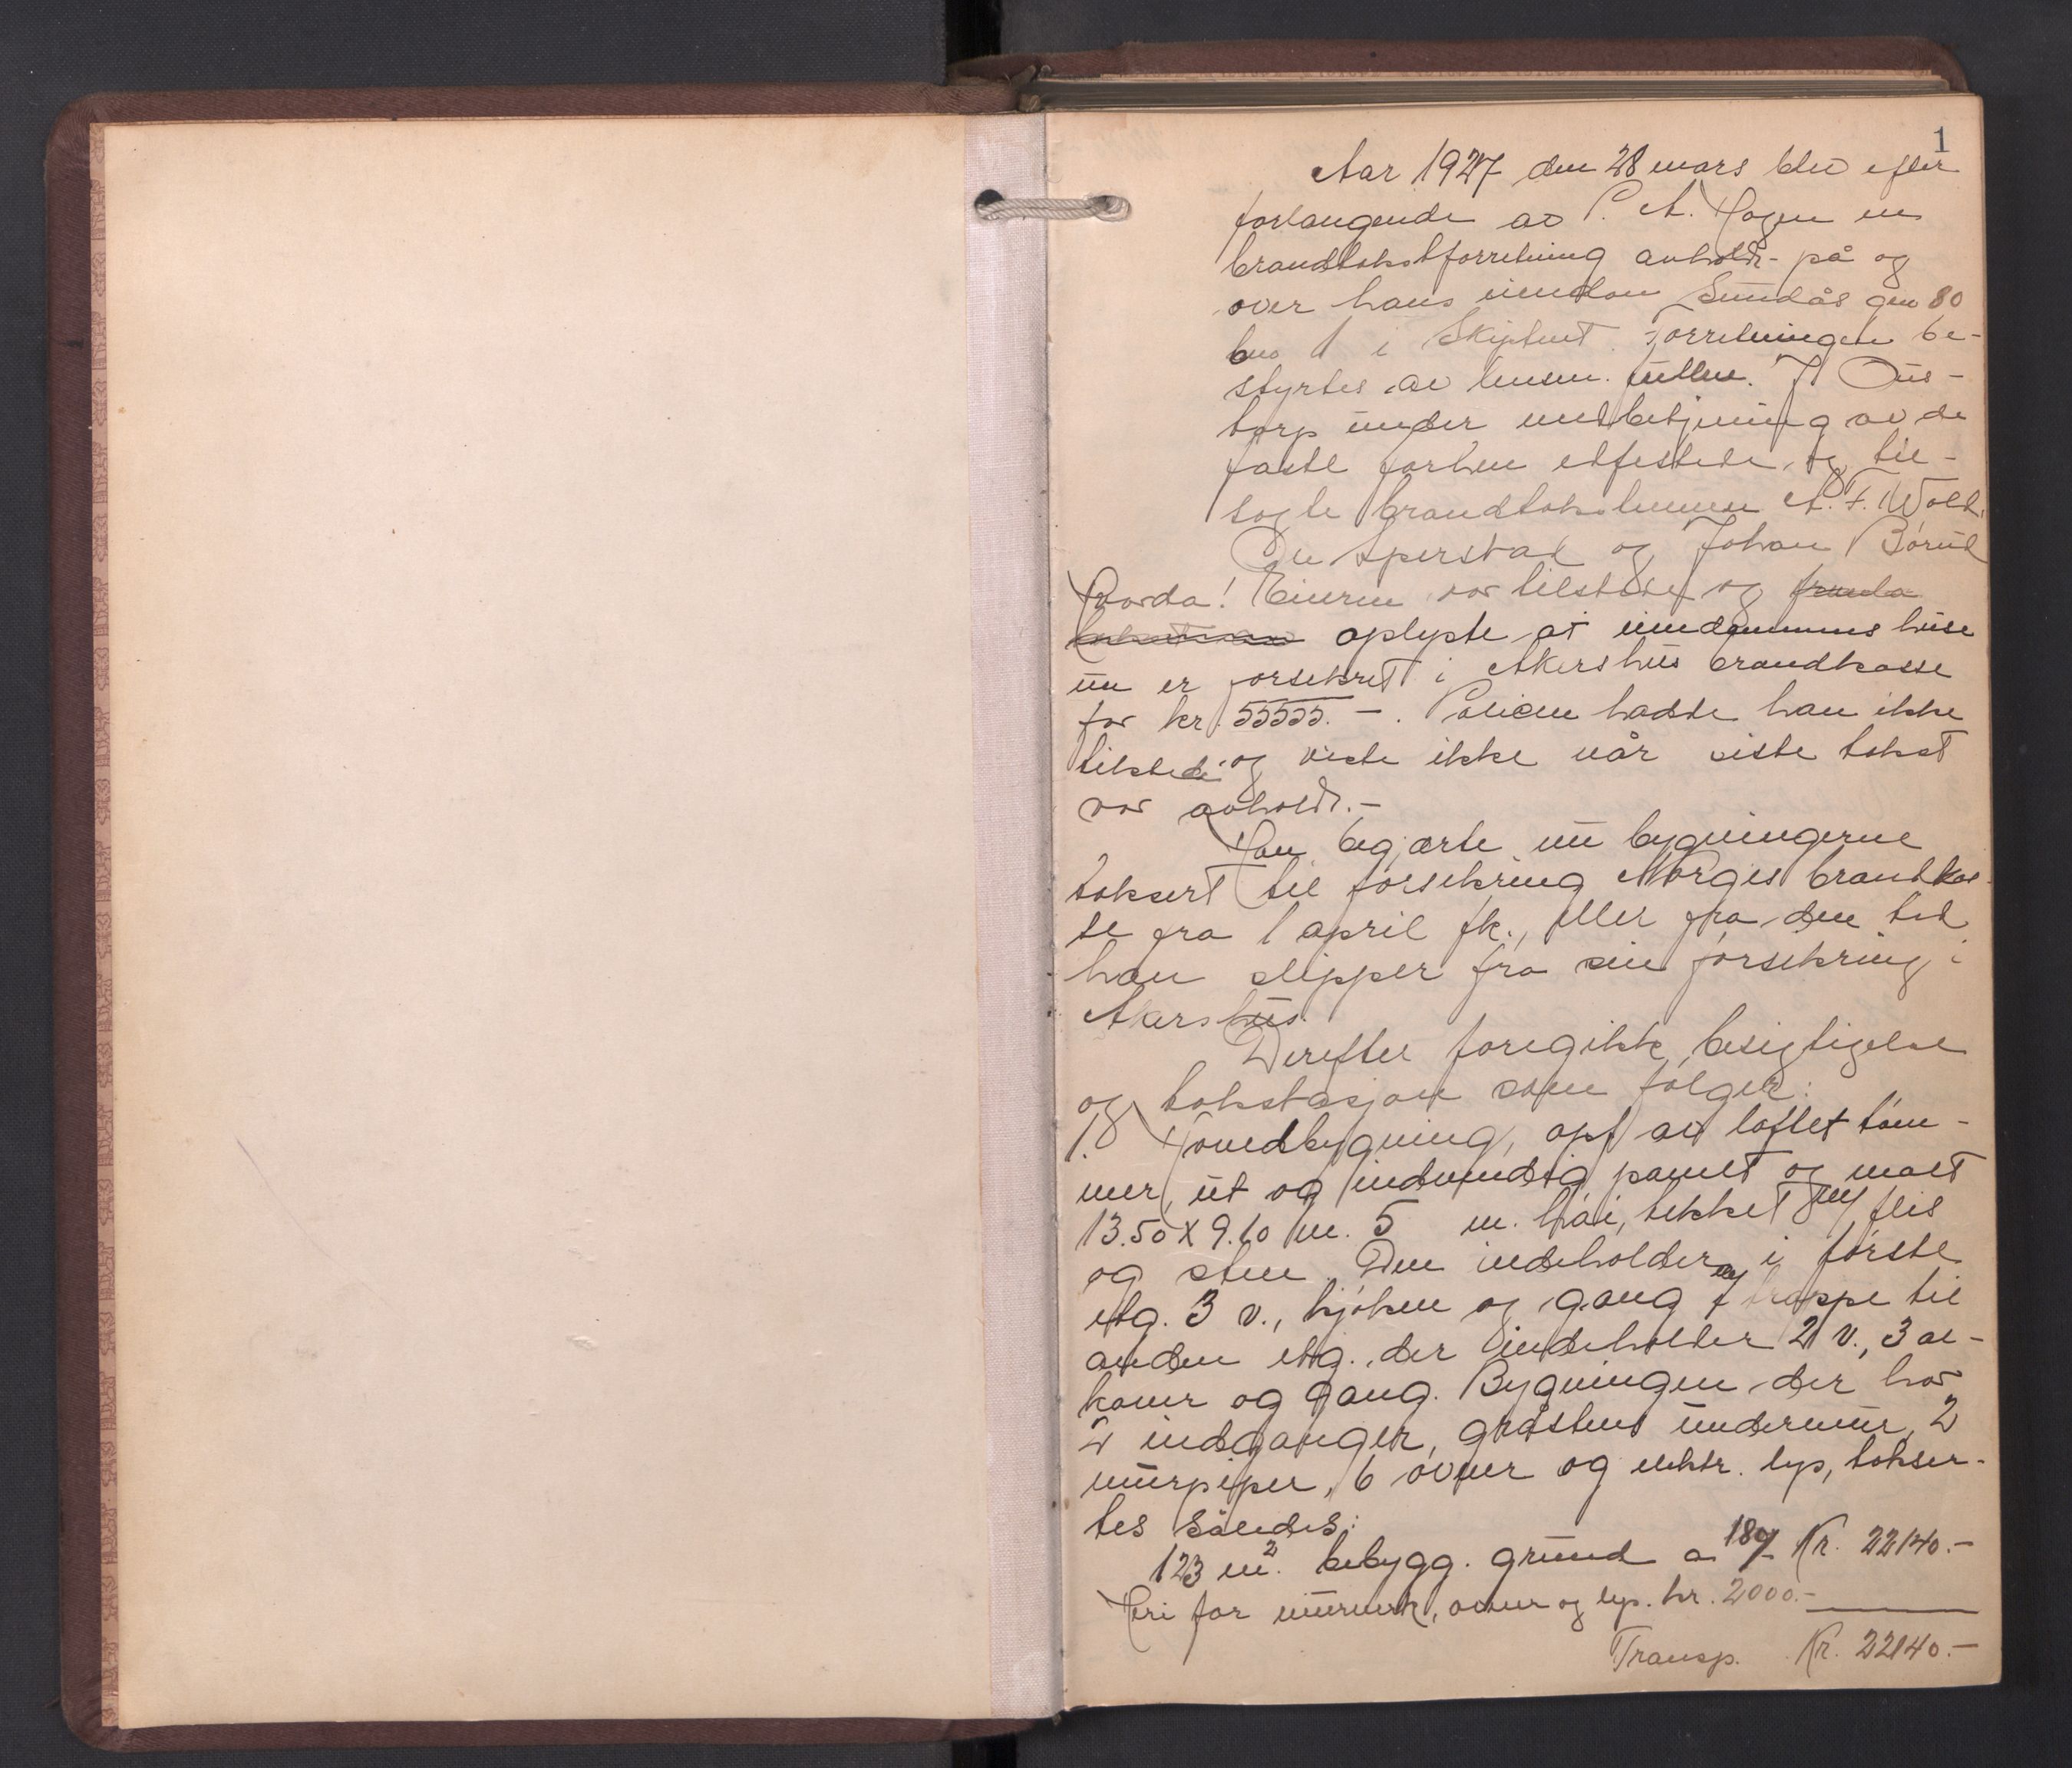 1
Aar 1927 den 28 mars blev efter
forlangende av P. A. Hagen en
brandtakstforretning avholdt på og
over hans eiendom Sundås gno 80
bno 1 i Skiptvet. Forretningen be-
styrtes av lensm. fullm. Ous-
torp under medbetjening av de
faste forhen edfestede og til-
sagte brandtakstmenn A. F. Wold,
Ole Sperstad og Johan Borud
Hvorda! Eieren var tilstede og
oplyste at eiendommens huse
nu er forsekret i Akershus brandkasse
for kr. 55555.-. Policen hadde han ikke
tilstede og viste ikke når siste takst
var avholdt.-
Han begjærte nu bygningerne
taksert til forsekring Norges brandkas-
se fra 1 april fk., eller fra den tid
han slipper fra sin forsekring i
Akershus.
Derefter foregikk besigtigelse
og takstasjon som følger:
1. Hovedbygning, opf av laftet tøm-
mer, ut og indvendig panelt og malt
13.50 x 9.10 m. 5 m. høi, tekket m/ flis
og sten. Den indeholder i første
etg. 3 v., kjøken og gang m/ trappe til
anden etg. der indeholder 2 v., 3 al-
kover og gang. Bygningen der har
2 indganger, gråstens undermur, 2
murpiper, 6 ovner og elektr. lys, takser-
tes således:
123 m². bebygg. grund a 180/- Kr. 22140.-
Heri for murverk, ovner og lys. kr. 2000.-
Transp. Kr. 22140.-